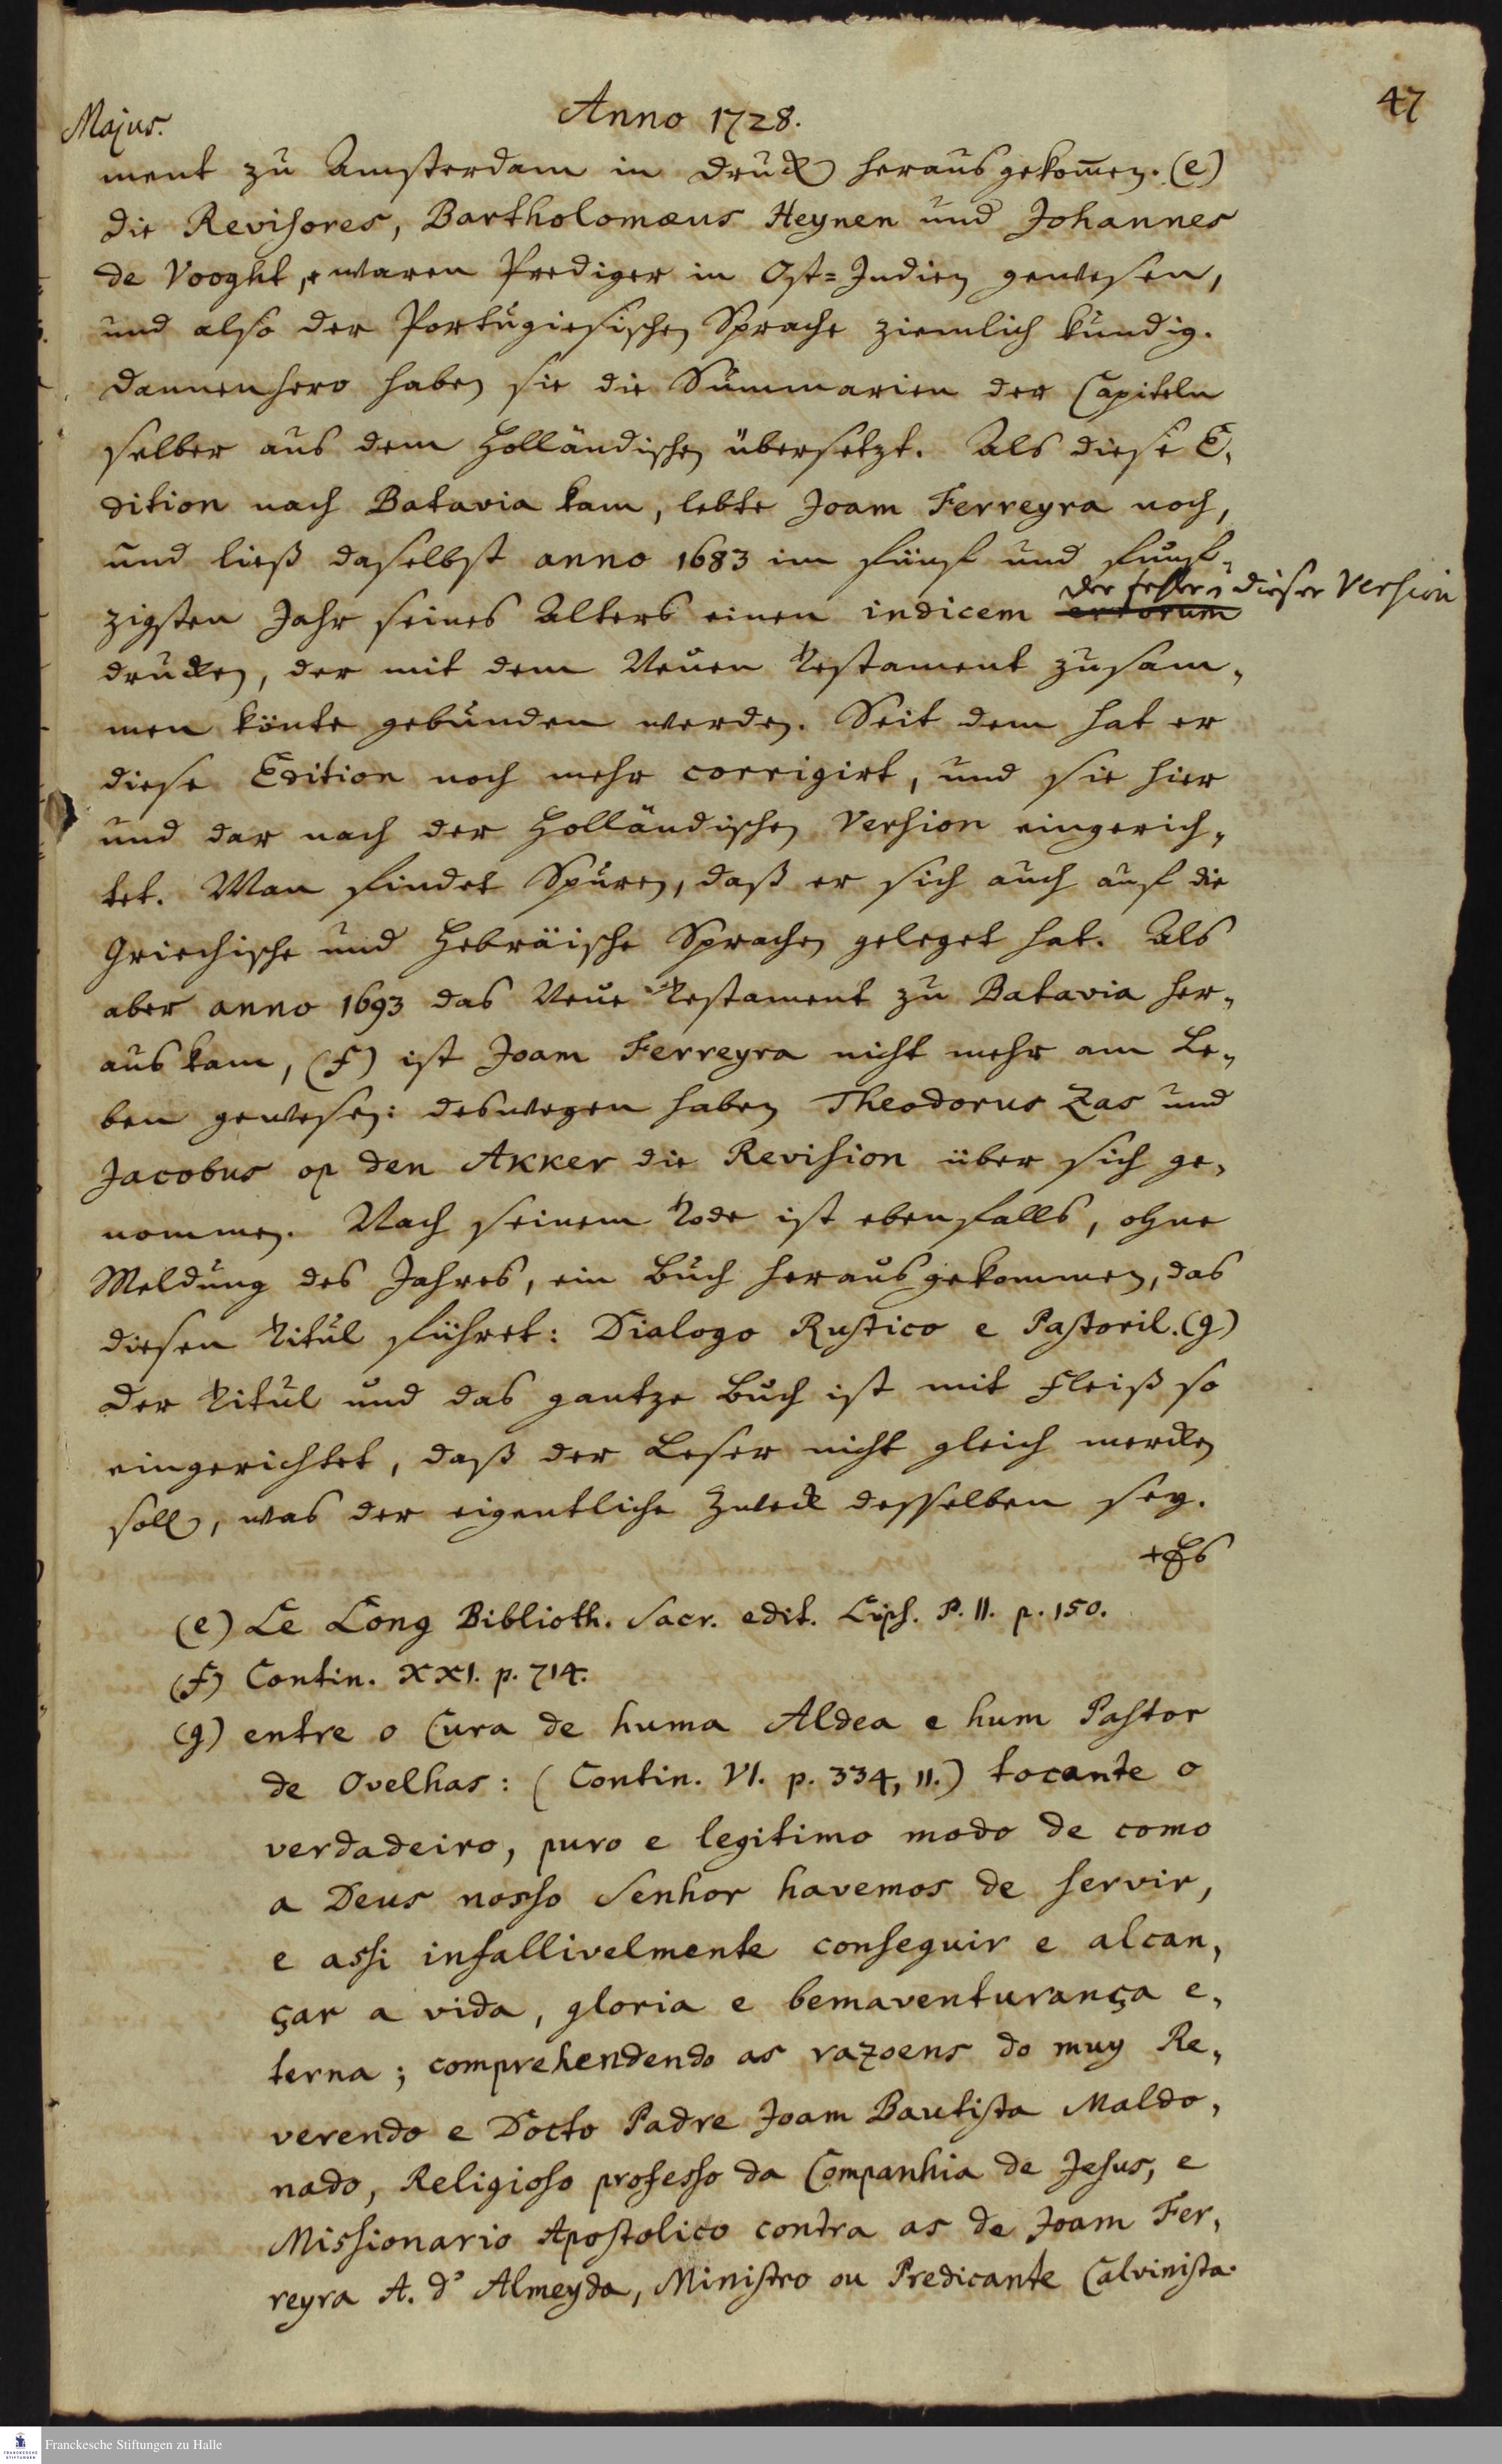 Majus.
Anno 1728.
47
ment zu Amsterdam in Druck herausgekom̅en. (e)
Die Revisores, Bartholomæus Heynen und Johannes
de Vooght, waren Prediger in Ost-Indien gewesen,
und also der Portugiesischen Sprache ziemlich kundig.
Dannenhero haben sie die Summarien der Capiteln
selber aus dem Holländischen übersetzt. Als diese E-
dition nach Batavia kam, lebte Joam Ferreyra noch,
und ließ daselbst anno 1683 im fünf und funf-
der Fehler dieser Version
zigsten Jahr seines Alters einen indicem errorum
drucken, der mit dem Neuen Testament zusam-
men könte gebunden werden. Seit dem hat er
diese Edition noch mehr corrigirt, und sie hier
und dar nach der Holländischen Version eingerich-
tet. Man findet Spuren, daß er sich auch auf die
Griechische und Hebräische Sprachen geleget hat. Als
aber anno 1693 das Neue Testament zu Batavia her-
aus kam, (f) ist Joam Ferreyra nicht mehr am Le-
ben gewesen: deswegen haben Theodorus Zas und
Jacobus op den Akker die Revision über sich ge-
nommen. Nach seinem Tode ist ebenfalls, ohne
Meldung des Jahres, ein Buch herausgekommen, das
diesen Titul führet: Dialogo Rustico e Pastoril. (g)
Der Titul und das gantze Buch ist mit Fleiß so
eingerichtet, daß der Leser nicht gleich mercken
soll, was der eigentliche Zweck desselben sey.
Es
(e) Le Long Biblioth. Sacr. edit. Lips. P. II. p. 150.
(f) Contin. XXI. p. 714.
(g) entre o Cura de huma Aldea e hum Pastor
de Ovelhas: (Contin. VI. p. 334, 11.) tocante o
verdadeiro, puro e legitimo modo de como
a Deus nosso Senhor havemos de servir,
e assi infallivelmente conseguir e alcan-
çar a vida, gloria e bemaventurança e-
terna; comprehendendo as razoens do muy Re-
verendo e Docto Padre Joam Bautista Maldo-
nado, Religioso professo da Companhia de Jesus, e
Missionario Apostolico contra as de Joam Fer-
reyra A. d' Almeyda, Ministro ou Predicante Calvinista.
Franckesche Stiftungen zu Halle